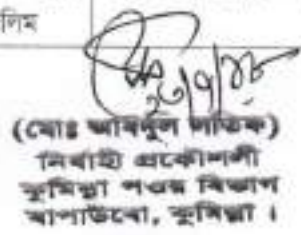 লিম
(মোঃ আবদুল লতিফ)
নির্বাহী প্রকৌশলী
কুমিল্লা পওর বিভাগ
বাপাউবো, কুমিল্লা ।